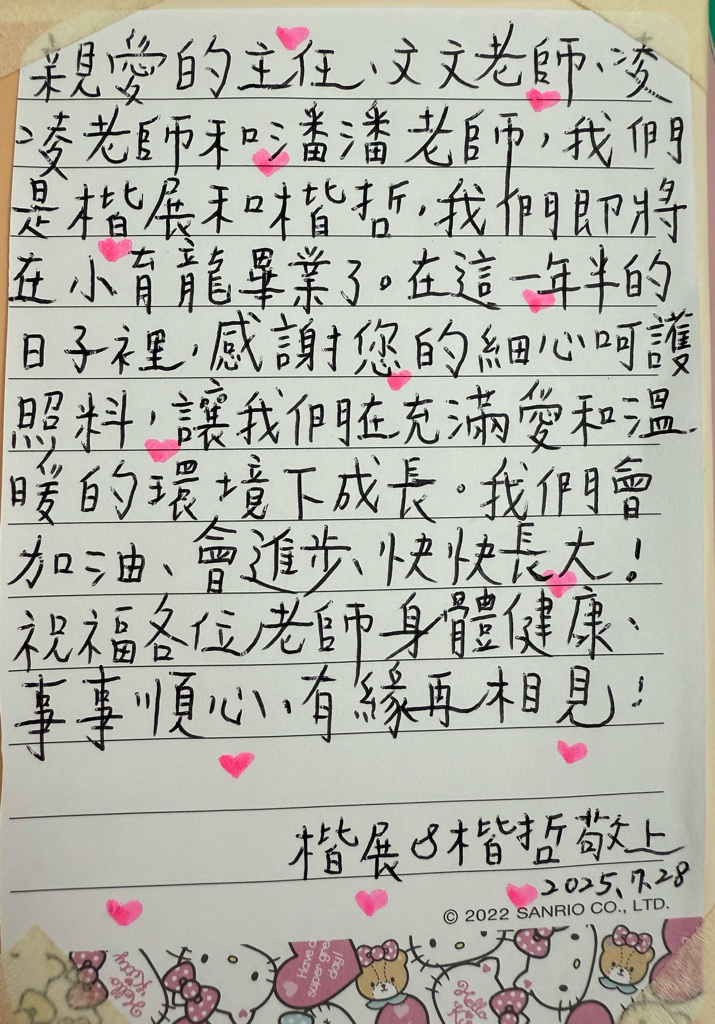 親愛的主任、文文老師、凌
凌老師和潘潘老師，我們
是楷展和楷哲，我們即將
在小育龍畢業了。在這一年半的
日子裡，感謝您的細心呵護
照料，讓我們在充滿愛和溫
暖的環境下成長。我們會
加油、會進步、快快長大！
祝福各位老師身體健康、
事事順心、有緣再相見！
楷展&楷哲敬上
2025.7.28
© 2022 SANRIO CO., LTD.
Hello Kitty
Have a super great day!